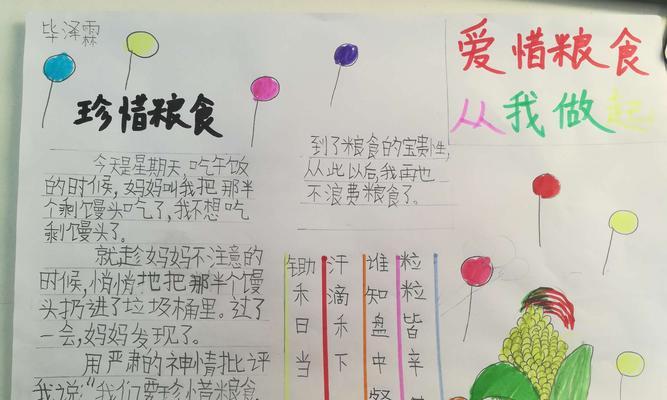 毕泽霖
爱惜粮食
从我做起
珍惜粮食
今天是星期天,吃午饭
的时候,妈妈叫我把那半
个剩馒头吃了,我不想吃
剩馒头了。
就趁妈妈不注意的
时候,悄悄地把那半个馒
头扔进了垃圾桶里。过了
一会,妈妈发现了。
用严肃的神情批评
我说:“我们要珍惜粮食,
到了粮食的宝贵性,
从此以后,我再也
不浪费粮食了。
锄禾日当
汗滴禾下
谁知盘中餐
粒粒皆辛